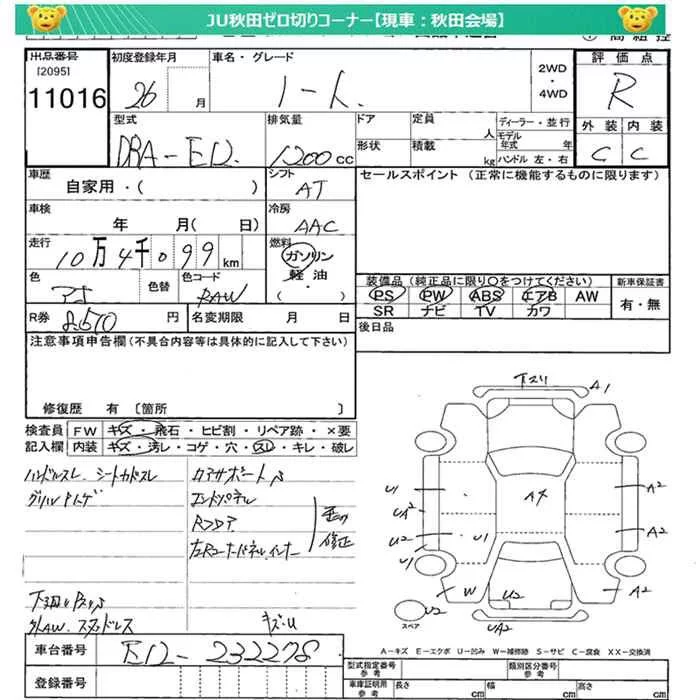 JU秋田ゼロ切りコーナー【現車：秋田会場】
出品番号
[2095]
11016
初度登録年月
26 月
車名・グレード
ノート
2WD
・
4WD
評価点
R
外装 内装
C C
型式
DBA-E12
排気量
1200 CC
ドア
形状
定員
人
積載
kg
ディーラー・並行
モデル
年式 年
ハンドル 左・右
車歴
自家用・( )
シフト
AT
セールスポイント（正常に機能するものに限ります）
車検
年 月( 日)
冷房
AAC
走行
10万4千099km
燃料
ガソリン
・
軽油
( ・ )
色
色替
色コード
RAW
装備品（純正品に限り○をつけてください）
新車保証書
PS PW ABS エアB AW
SR ナビ TV カワ
有・無
R券 8,510 円
名変期限 月 日
後日品
注意事項申告欄（不具合内容等は具体的に記入して下さい）
修復歴 有 〔箇所 〕
検査員
記入欄
FW キズ・飛石・ヒビ割・リペア跡・×要
内装 キズ・汚レ・コゲ・穴・スレ・キレ・破レ
ハンドルスレ シートカドスレ
コアサポート
エンドパネル
Rフロア
左Rコーナーパネルインナー
修正
下スリ
A1
U1
UA2
U2
U1
U1
A4
A2
A2
A2
W
U2
U2
UA2
スペア
キズ・U
A－キズ E－エクボ U－凹み W－補修跡 S－サビ C－腐食 XX－交換済
車台番号
E12-232278
登録番号
型式指定番号
参考
類別区分番号
参考
車庫証明用
参考
長さ cm
幅 cm
高さ cm